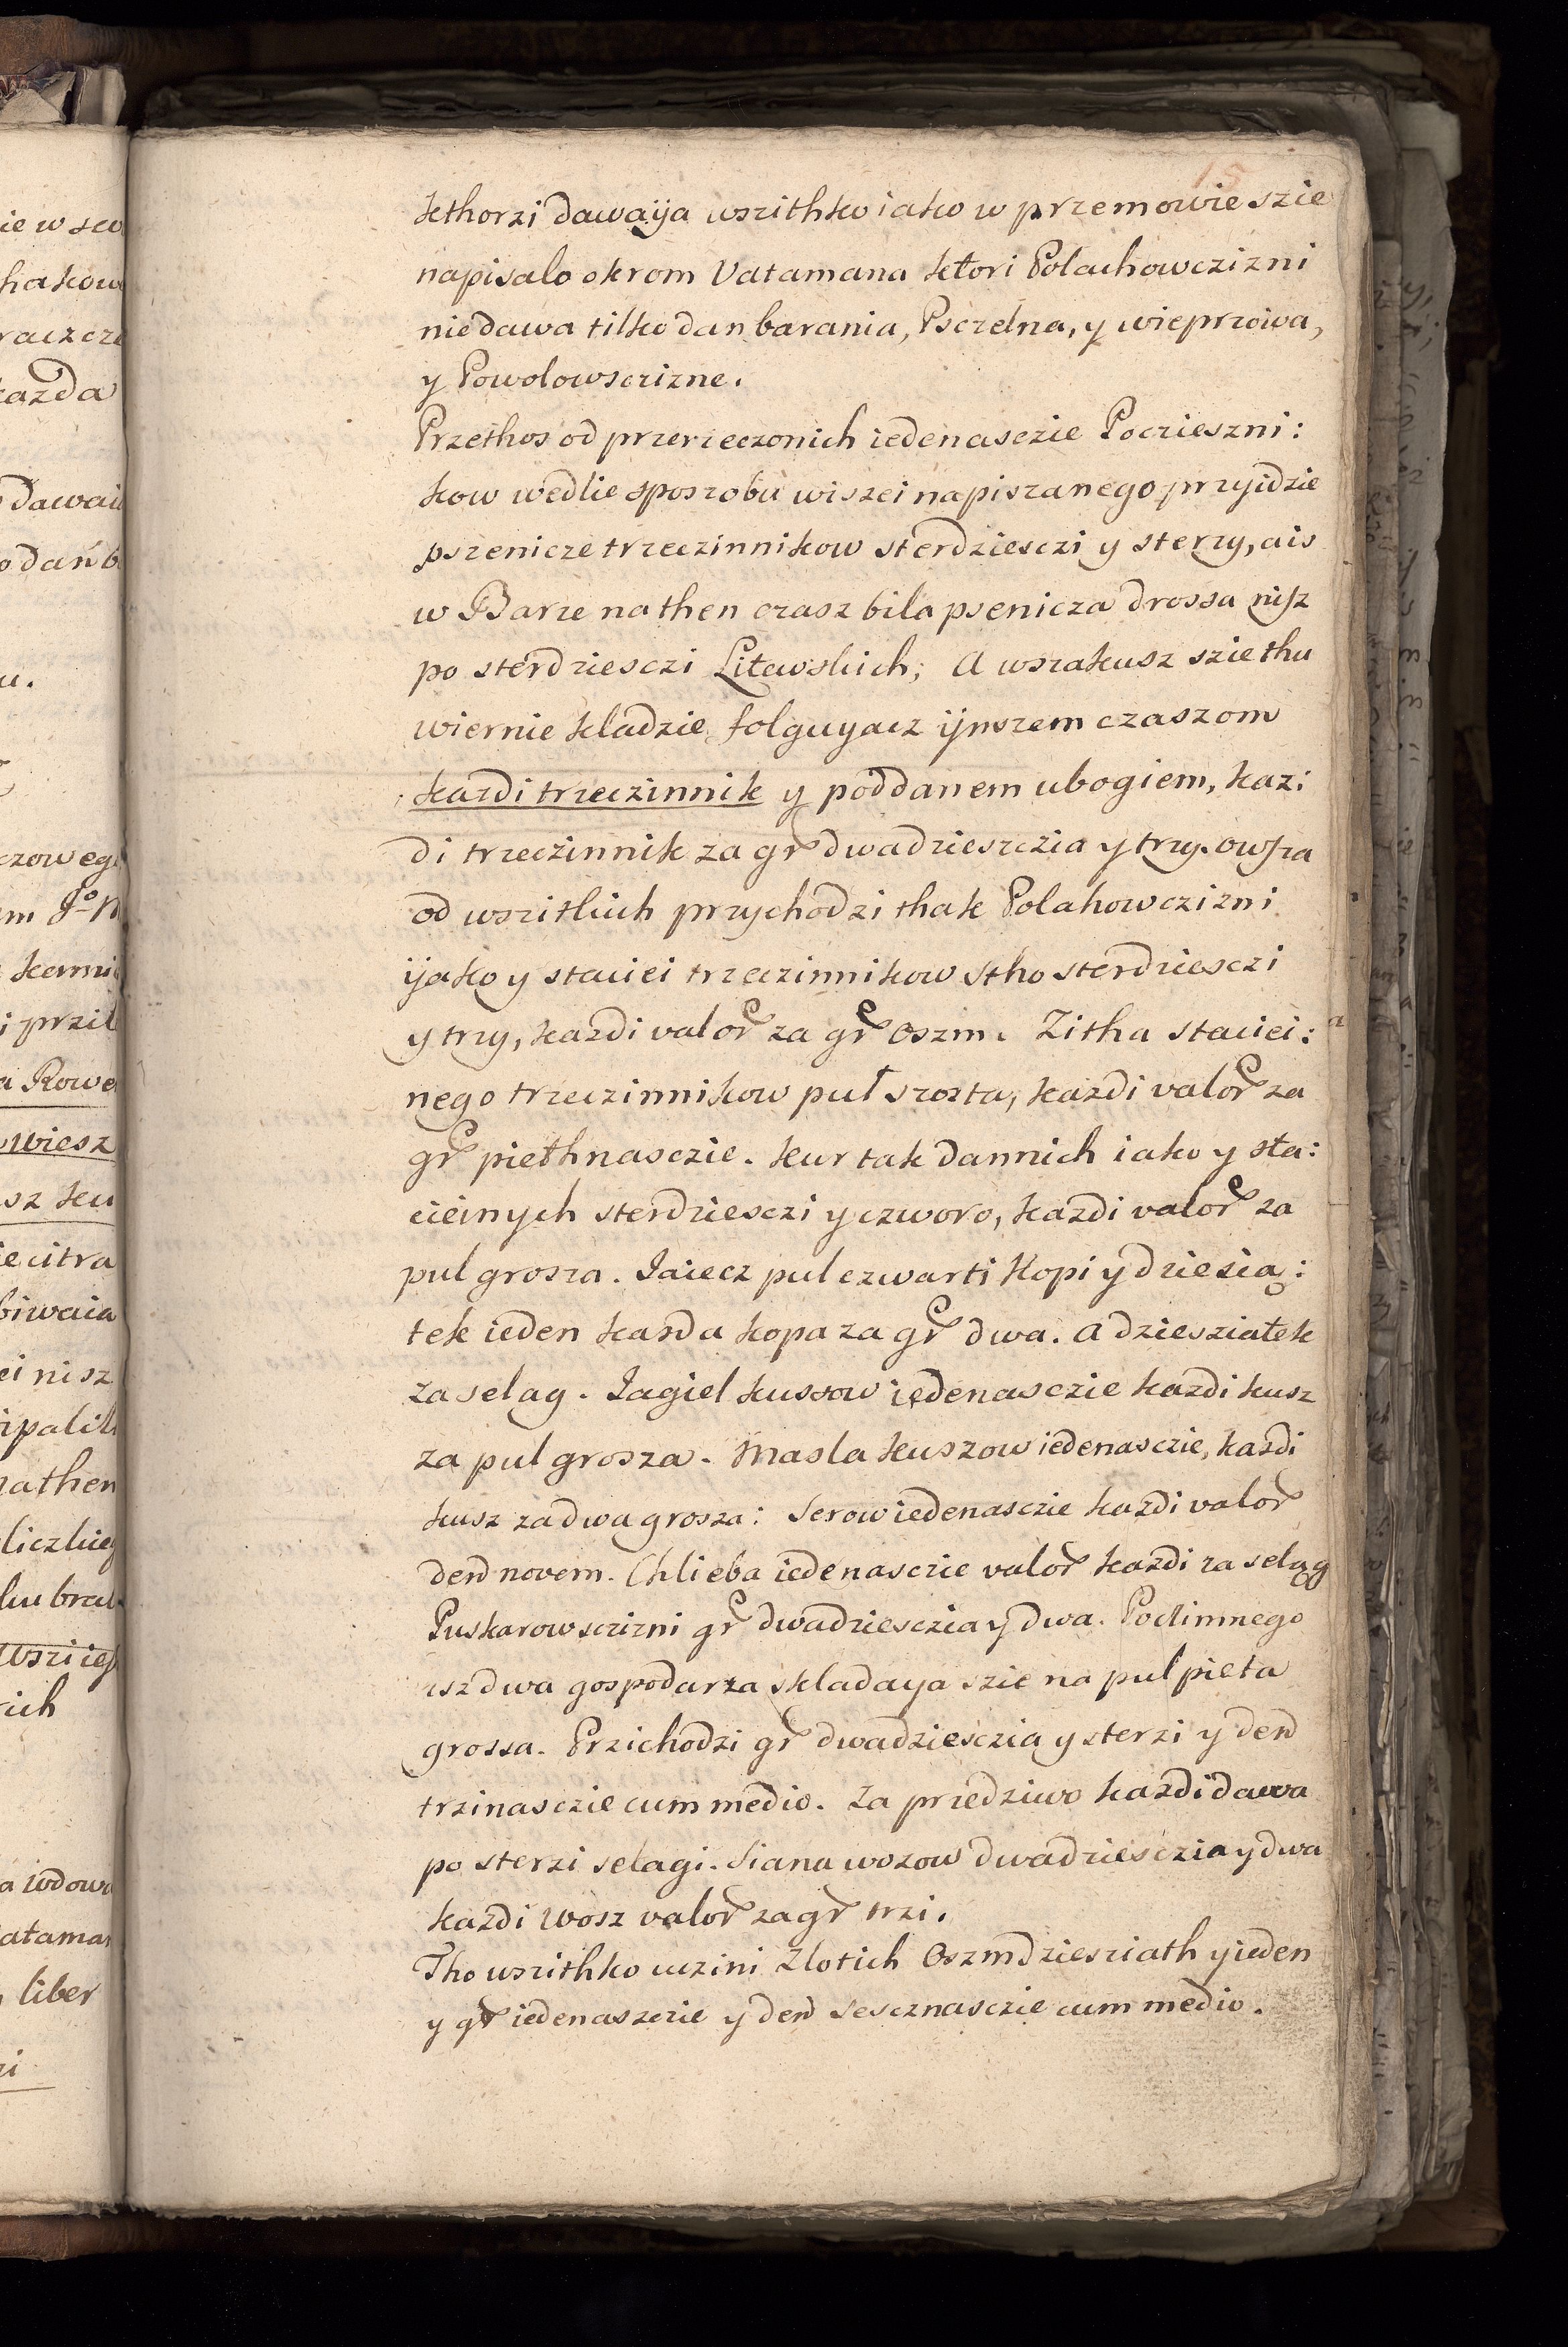 15
kthorzi dawaÿa wszithko iako w przemowie szie
napisalo okrom Vatamana ktori Polachowczizni
niedawa tilko dan barania, Psczelna, y wieprzowa,
y Powolowsczizne.
Przethos od przerzeczonich iedenasczie Poczieszni:
kow wedlie sposzobu wiszei napiszanego przyidzie
pszenicze trzeczinnikow sterdziesczi y sterzy, a is
w Barze na then czasz bila psenicza drossa nisz
po sterdziesczi Litewskich; A wszakusz szie thu
wiernie kladzie folguyacz ijnszem czaszom
kazdi trzeczinnik y poddanem ubogiem, kaz:
di trzeczinnik za gr dwadzieszczia y trzy. owsza
od wszitkich przychodzi thak Polahowczizni
ijako y staciei trzeczinnikow stho sterdziesczi
y trzy, kazdi valor za gr oszm. Zitha staciei:
nego trzeczinnikow puł szosta, kazdi valor za
gr piethnasczie. kur tak dannich iako y sta:
cieinych sterdziesczi y czworo, kazdi valor za
pul grosza. Jaiecz pul czwarti kopi y dziesią:
tek ieden kazda kopa za gr dwa. a dziesziatek
za selag. Jagiel kussow iedenasczie kazdi kusz
za pul grosza. Masla kuszow iedenasczie, kazdi
kusz za dwa grosza: Serow iedenasczie kazdi valor
den novem. Chlieba iedenasczie valor kazdi za seląg
Puskarowsczizni gr dwadziesczia y dwa. Podimnego
isz dwa gospodarza skladaya szie na pul pieta
grossa. Przichodzi gr dwadziesczia y sterzi y den
trzinasczie cum medio. Za przedziwo kazdi dawa
po sterzi selagi. Siana wozow dwadziesczia y dwa
kazdi wosz valor za gr trzi.
Tho wszithko uczini Zlotich Oszmdziesziath y ieden
y gr iedenaszczie y den sescznasczie cum medio.